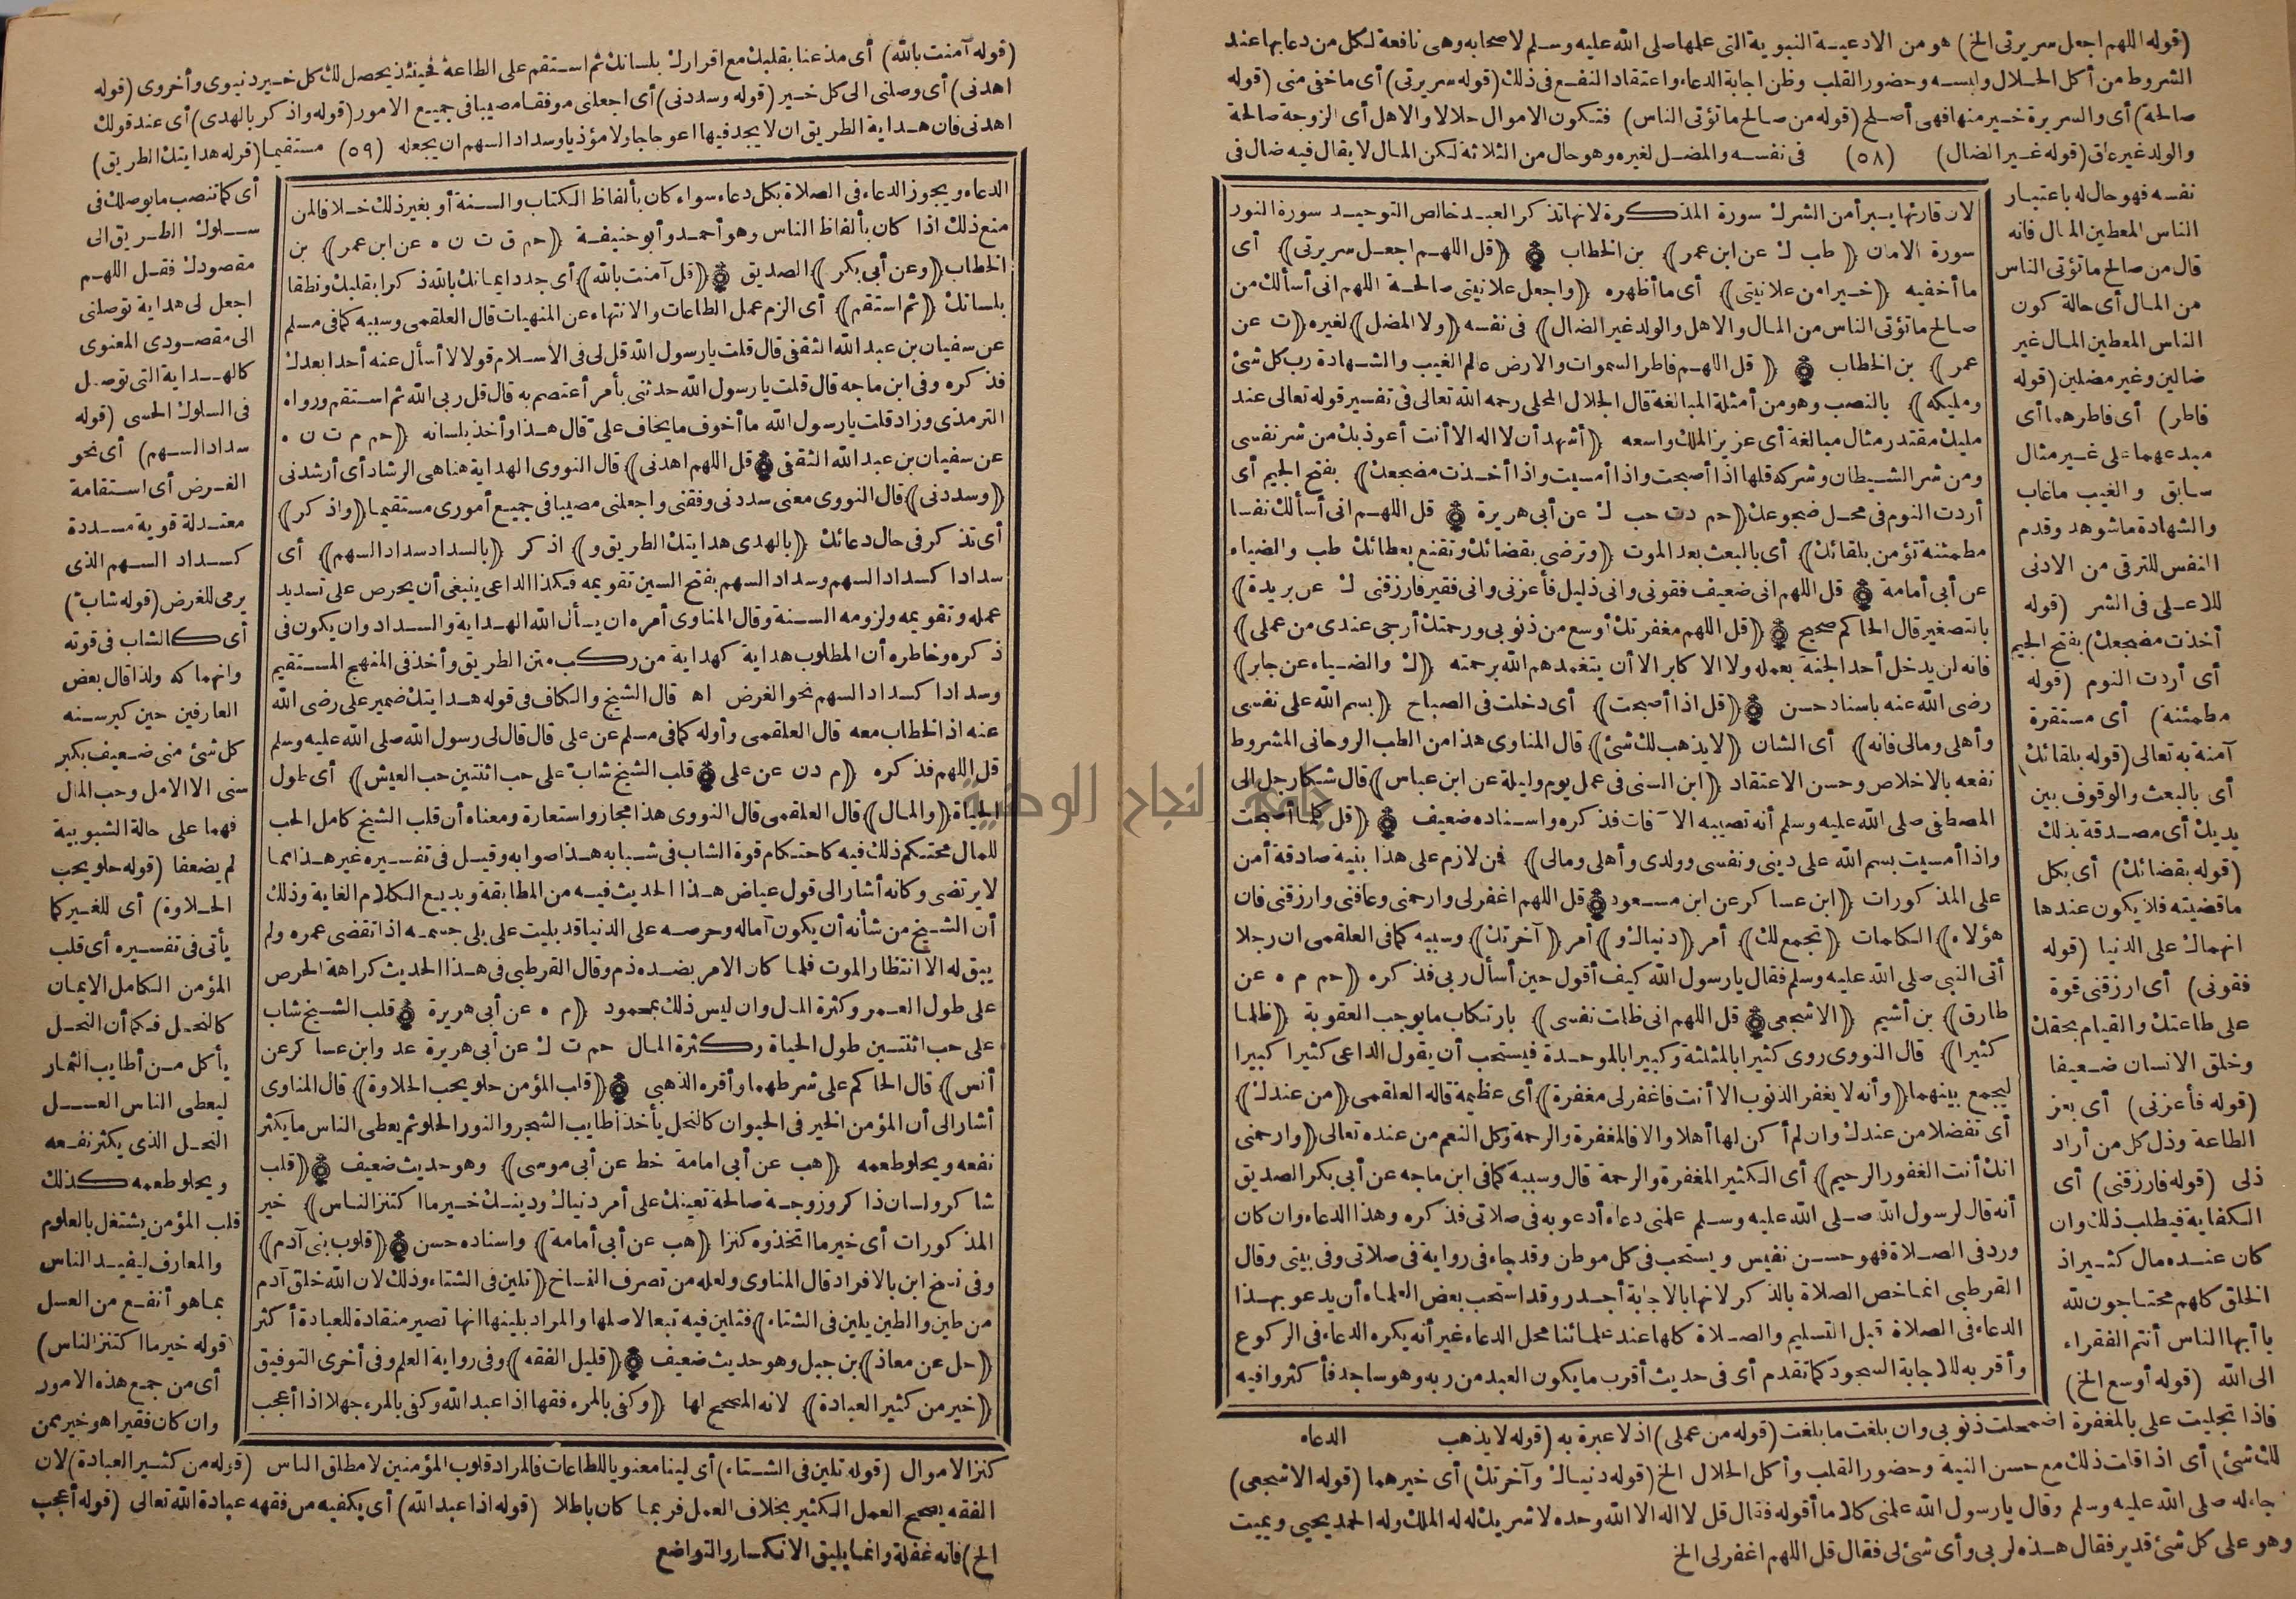 (قوله اللهم اجعل سريرتى الخ) هو من الادعية النبوية التى علمها صلى الله عليه وسلم لاصحابه وهى نافعة لكل من دعا بها عند
الشروط من أكل الحلال ولبسه وحضور القلب وظن اجابة الدعاء واعتقاد النفع فى ذلك (قوله سريرتى) أى ما خفى منى (قوله
صالحة) أى والسريرة خير منها فهى أصلح (قوله من صالح ما تؤتى الناس) فتكون الاموال حلالا والاهل أى الزوجة صالحة
والولد غير عاق (قوله غير الضال) (٥٨) فى نفسه والمضل لغيره وهو حال من الثلاثة لكن المال لا يقال فيه ضال فى
نفسه فهو حال له باعتبار
الناس المعطين المال فانه
قال من صالح ما تؤتى الناس
من المال أى حالة كون
الناس المعطين المال غير
ضالين وغير مضلين (قوله
فاطر) أى فاطرهما أى
مبدعهما على غير مثال
سابق والغيب ما غاب
والشهادة ما شوهد وقدم
النفس للترقى من الادنى
للاعلى فى الشر (قوله
أخذت مضجعك) بفتح الجيم
أى أردت النوم (قوله
مطمئنة) أى مستقرة
آمنة به تعالى (قوله بلقائك)
أى بالبعث والوقوف بين
يديك أى مصدقة بذلك
(قوله بقضائك) أى بكل
ما قضيته فلا يكون عندها
انهماك على الدنيا (قوله
فقونى) أى ارزقنى قوة
على طاعتك والقيام بحقك
وخلق الانسان ضعيفا
(قوله فأعزنى) أى بعز
الطاعة وذل كل من أراد
ذلى (قوله فارزقنى) أى
الكفاية فيطلب ذلك وان
كان عنده مال كثير اذ
الخلق كلهم محتاجون لله
يا أيها الناس أنتم الفقراء
الى الله (قوله أوسع الخ)
لان قارئها يبرأ من الشرك سورة المذكرة لانها تذكر العبد خالص التوحيد سورة النور
سورة الامان ﴿طب ك عن ابن عمر﴾ بن الخطاب ﴿قل اللهم اجعل سريرتى﴾ أى
ما أخفيه ﴿خيرا من علانيتى﴾ أى ما أظهره ﴿واجعل علانيتى صالحة اللهم انى أسألك من
صالح ما تؤتى الناس من المال والاهل والولد غير الضال﴾ فى نفسه ﴿ولا المضل﴾ لغيره ﴿ت عن
عمر﴾ بن الخطاب ﴿قل اللهم فاطر السموات والارض عالم الغيب والشهادة رب كل شئ
ومليكه﴾ بالنصب وهو من أمثلة المبالغة قال الجلال المحلى رحمه الله تعالى فى تفسير قوله تعالى عند
مليك مقتدر مثال مبالغة أى عزيز الملك واسعه ﴿أشهد أن لا اله الا أنت أعوذ بك من شر نفسى
ومن شر الشيطان وشركه قلها اذا أصبحت واذا أمسيت واذا أخذت مضجعك﴾ بفتح الجيم أى
أردت النوم فى محل ضجوعك ﴿حم دت حب ك عن أبى هريرة ﴿قل اللهم انى أسألك نفسا
مطمئنة تؤمن بلقائك﴾ أى بالبعث بعد الموت ﴿وترضى بقضائك وتقنع بعطائك طب والضياء
عن أبى أمامة ﴿قل اللهم انى ضعيف فقونى وانى ذليل فأعزنى وانى فقير فارزقنى ك عن بريدة﴾
بالتصغير قال الحاكم صحيح ﴿قل اللهم مغفرتك أوسع من ذنوبى ورحمتك أرجى عندى من عملى﴾
فانه لن يدخل أحد الجنة بعمله ولا الاكابر الا أن يتغمدهم الله برحمته ﴿ك والضياء عن جابر﴾
رضى الله عنه باسناد حسن ﴿قل اذا أصبحت﴾ أى دخلت فى الصباح ﴿بسم الله على نفسى
وأهلى ومالى فانه﴾ أى الشان ﴿لا يذهب لك شئ﴾ قال المناوى هذا من الطب الروحانى المشروط
نفعه بالاخلاص وحسن الاعتقاد ﴿ابن السنى فى عمل يوم وليلة عن ابن عباس﴾ قال شكا رجل الى
المصطفى صلى الله عليه وسلم أنه تصيبه الآفات فذكره واسناده ضعيف ﴿قل كلما أصبحت
واذا أمسيت بسم الله على دينى ونفسى وولدى وأهلى ومالى﴾ فمن لازم على هذا بنية صادقة أمن
على المذكورات ﴿ابن عساكر عن ابن مسعود ﴿قل اللهم اغفر لى وارحمنى وعافنى وارزقنى فان
هؤلاء﴾ الكلمات ﴿تجمع لك﴾ أمر ﴿دنياك و﴾ أمر ﴿آخرتك﴾ وسببه كما فى العلقمى ان رجلا
أتى النبى صلى الله عليه وسلم فقال يا رسول الله كيف أقول حين أسأل ربى فذكره ﴿حم م ه عن
طارق﴾ بن أشيم ﴿الاشجعى ﴿قل اللهم انى ظلمت نفسى﴾ بارتكاب ما يوجب العقوبة ﴿ظلما
كثيرا﴾ قال النووى روى كثيرا بالمثلثة وكبيرا بالموحدة فيستحب أن يقول الداعى كثيرا كبيرا
ليجمع بينهما ﴿وأنه لا يغفر الذنوب الا أنت فاغفر لى مغفرة﴾ أى عظيمة قاله العلقمى ﴿من عندك﴾
أى تفضلا من عندك وان لم أكن لها أهلا والا فالمغفرة والرحمة وكل النعم من عنده تعالى ﴿وارحمنى
انك أنت الغفور الرحيم﴾ أى الكثير المغفرة والرحمة قال وسببه كما فى ابن ماجه عن أبى بكر الصديق
أنه قال لرسول الله صلى الله عليه وسلم علمنى دعاء أدعو به فى صلاتى فذكره وهذا الدعاء وان كان
ورد فى الصلاة فهو حسن نفيس ويستحب فى كل موطن وقد جاء فى رواية فى صلاتى وفى بيتى وقال
القرطبى انما خص الصلاة بالذكر لانها بالاجابة أجدر وقد استحب بعض العلماء أن يدعو بهذا
الدعاء فى الصلاة قبل التسليم والصلاة كلها عند علمائنا محل الدعاء غير أنه يكره الدعاء فى الركوع
وأقربه للاجابة السجود كما تقدم أى فى حديث أقرب ما يكون العبد من ربه وهو ساجد فأكثروا فيه
الدعاء
فاذا تجليت على بالمغفرة اضمحلت ذنوبى وان بلغت ما بلغت (قوله من عملى) اذ لا عبرة به (قوله لا يذهب
لك شئ) أى اذا قلت ذلك مع حسن النية وحضور القلب وأكل الحلال الخ (قوله دنياك وآخرتك) أى خيرهما (قوله الاشجعى)
جاء له صلى الله عليه وسلم وقال يا رسول الله علمنى كلاما أقوله فقال قل لا اله الا الله وحده لا شريك له له الملك وله الحمد يحيى ويميت
وهو على كل شئ قدير فقال هذه لربى وأى شئ لى فقال قل اللهم اغفر لى الخ
(قوله آمنت بالله) أى مذعنا بقلبك مع اقرارك بلسانك ثم استقم على الطاعة فحينئذ يحصل لك كل خير دنيوى وأخروى (قوله
اهدنى) أى وصلنى الى كل خير (قوله وسددنى) أى اجعلنى موفقا مصيبا فى جميع الامور (قوله واذكر بالهدى) أى عند قولك
اهدنى فان هداية الطريق ان لا يجد فيها اعوجاجا ولا مؤذيا وسداد السهم ان يجعله (٥٩) مستقيما (قوله هدايتك الطريق)
الدعاء ويجوز الدعاء فى الصلاة بكل دعاء سواء كان بألفاظ الكتاب والسنة أو بغير ذلك خلافا لمن
منع ذلك اذا كان بألفاظ الناس وهو أحمد وأبو حنيفة ﴿حم ق ت ن ه عن ابن عمر﴾ بن
الخطاب ﴿وعن أبى بكر﴾ الصديق ﴿قل آمنت بالله﴾ أى جدد ايمانك بالله ذكرا بقلبك ونطقا
بلسانك ﴿ثم استقم﴾ أى الزم عمل الطاعات والانتهاء عن المنهيات قال العلقمى وسببه كما فى مسلم
عن سفيان بن عبد الله الثقفى قال قلت يا رسول الله قل لى فى الاسلام قولا لا أسأل عنه أحدا بعدك
فذكره وفى ابن ماجه قال قلت يا رسول الله حدثنى بأمر أعتصم به قال قل ربى الله ثم استقم ورواه
الترمذى وزاد قلت يا رسول الله ما أخوف ما يخاف على قال هذا وأخذ بلسانه ﴿حم م ت ن ه
عن سفيان بن عبد الله الثقفى ﴿قل اللهم اهدنى﴾ قال النووى الهداية هنا هى الرشاد أى أرشدنى
﴿وسددنى﴾ قال النووى معنى سددنى وفقنى واجعلنى مصيبا فى جميع أمورى مستقيما ﴿واذكر﴾
أى تذكر فى حال دعائك ﴿بالهدى هدايتك الطريق و﴾ اذكر ﴿بالسداد سداد السهم﴾ أى
سدادا كسداد السهم وسداد السهم بفتح السين تقويمه فكذا الداعى ينبغى أن يحرص على تسديد
عمله وتقويمه ولزومه السنة وقال المناوى أمره ان يسأل الله الهداية والسداد وان يكون فى
ذكره وخاطره أن المطلوب هداية كهداية من ركب متن الطريق وأخذ فى المنهج المستقيم
وسدادا كسداد السهم نحو الغرض اه قال الشيخ والكاف فى قوله هدايتك ضمير على رضى الله
عنه اذ الخطاب معه قال العلقمى وأوله كما فى مسلم عن على قال قال لى رسول الله صلى الله عليه وسلم
قل اللهم فذكره ﴿م دن عن على ﴿قلب الشيخ شاب على حب اثنتين حب العيش﴾ أى طول
الحياة ﴿والمال﴾ قال العلقمى قال النووى هذا مجاز واستعارة ومعناه أن قلب الشيخ كامل الحب
للمال محتكم ذلك فيه كاحتكام قوة الشاب فى شبابه هذا صوابه وقيل فى تفسيره غير هذا مما
لا يرتضى وكأنه أشار الى قول عياض هذا الحديث فيه من المطابقة وبديع الكلام الغاية وذلك
أن الشيخ من شأنه أن يكون آماله وحرصه على الدنيا قد بليت على بلى جسمه اذا تقضى عمره ولم
يبق له الا انتظار الموت فلما كان الامر بضده ذم وقال القرطبى فى هذا الحديث كراهة الحرص
على طول العمر وكثرة المال وان ليس ذلك بمحمود ﴿م ه عن أبى هريرة ﴿قلب الشيخ شاب
على حب اثنتين طول الحياة وكثرة المال حم ت ك عن أبى هريرة عد وابن عساكر عن
أنس﴾ قال الحاكم على شرطهما وأقره الذهبى ﴿قلب المؤمن حلو يحب الحلاوة﴾ قال المناوى
أشار الى أن المؤمن الخير فى الحيوان كالنحل يأخذ أطايب الشجر والنور الحلو ثم يعطى الناس ما يكثر
نفعه ويحلو طعمه ﴿هب عن أبى امامة خط عن أبى موسى﴾ وهو حديث ضعيف ﴿قلب
شاكر ولسان ذاكر وزوجة صالحة تعينك على أمر دنياك ودينك خير ما اكتنز الناس﴾ خير
المذكورات أى خير ما اتخذوه كنزا ﴿هب عن أبى أمامة﴾ واسناده حسن ﴿قلوب بنى آدم﴾
وفى نسخ ابن بالافراد قال المناوى ولعله من تصرف النساخ ﴿تلين فى الشتاء وذلك لان الله خلق آدم
من طين والطين يلين فى الشتاء﴾ فتلين فيه تبعا لاصلها والمراد بلينها انها تصير منقادة للعبادة أكثر
﴿حل عن معاذ﴾ بن جبل وهو حديث ضعيف ﴿قليل الفقه﴾ وفى رواية العلم وفى أخرى التوفيق
﴿خير من كثير العبادة﴾ لانه المصحح لها ﴿وكفى بالمرء فقها اذا عبد الله وكفى بالمرء جهلا اذا أعجب
أى كما تنصب ما يوصلك فى
سلوك الطريق الى
مقصودك فقل اللهم
اجعل لى هداية توصلنى
الى مقصودى المعنوى
كالهداية التى توصل
فى السلوك الحسى (قوله
سداد السهم) أى نحو
الغرض أى استقامة
معتدلة قوية مسددة
كسداد السهم الذى
يرمى للغرض (قوله شاب)
أى كالشاب فى قوته
وانهماكه ولذا قال بعض
العارفين حين كبر سنه
كل شئ منى ضعيف بكبر
سنى الا الامل وحب المال
فهما على حالة الشبوبية
لم يضعفا (قوله حلو يحب
الحلاوة) أى للغير كما
يأتى فى تفسيره أى قلب
المؤمن الكامل الايمان
كالنحل فكما أن النحل
يأكل من أطايب الثمار
ليعطى الناس العسل
النحل الذى يكثر نفعه
ويحلو طعمه كذلك
قلب المؤمن يشتغل بالعلوم
والمعارف ليفيد الناس
بما هو أنفع من العسل
(قوله خير ما اكتنز الناس)
أى من جمع هذه الامور
وان كان فقيرا هو خير ممن
كنز الاموال (قوله تلين فى الشتاء) أى لينا معنويا للطاعات فالمراد قلوب المؤمنين لا مطلق الناس (قوله من كثير العبادة) لان
الفقه يصحح العمل الكثير بخلاف العمل فربما كان باطلا (قوله اذا عبد الله) أى يكفيه من فقهه عبادة الله تعالى (قوله أعجب
الخ) فانه غفلة وانما يليق الانكسار والتواضع
جامعة النجاح الوطنية